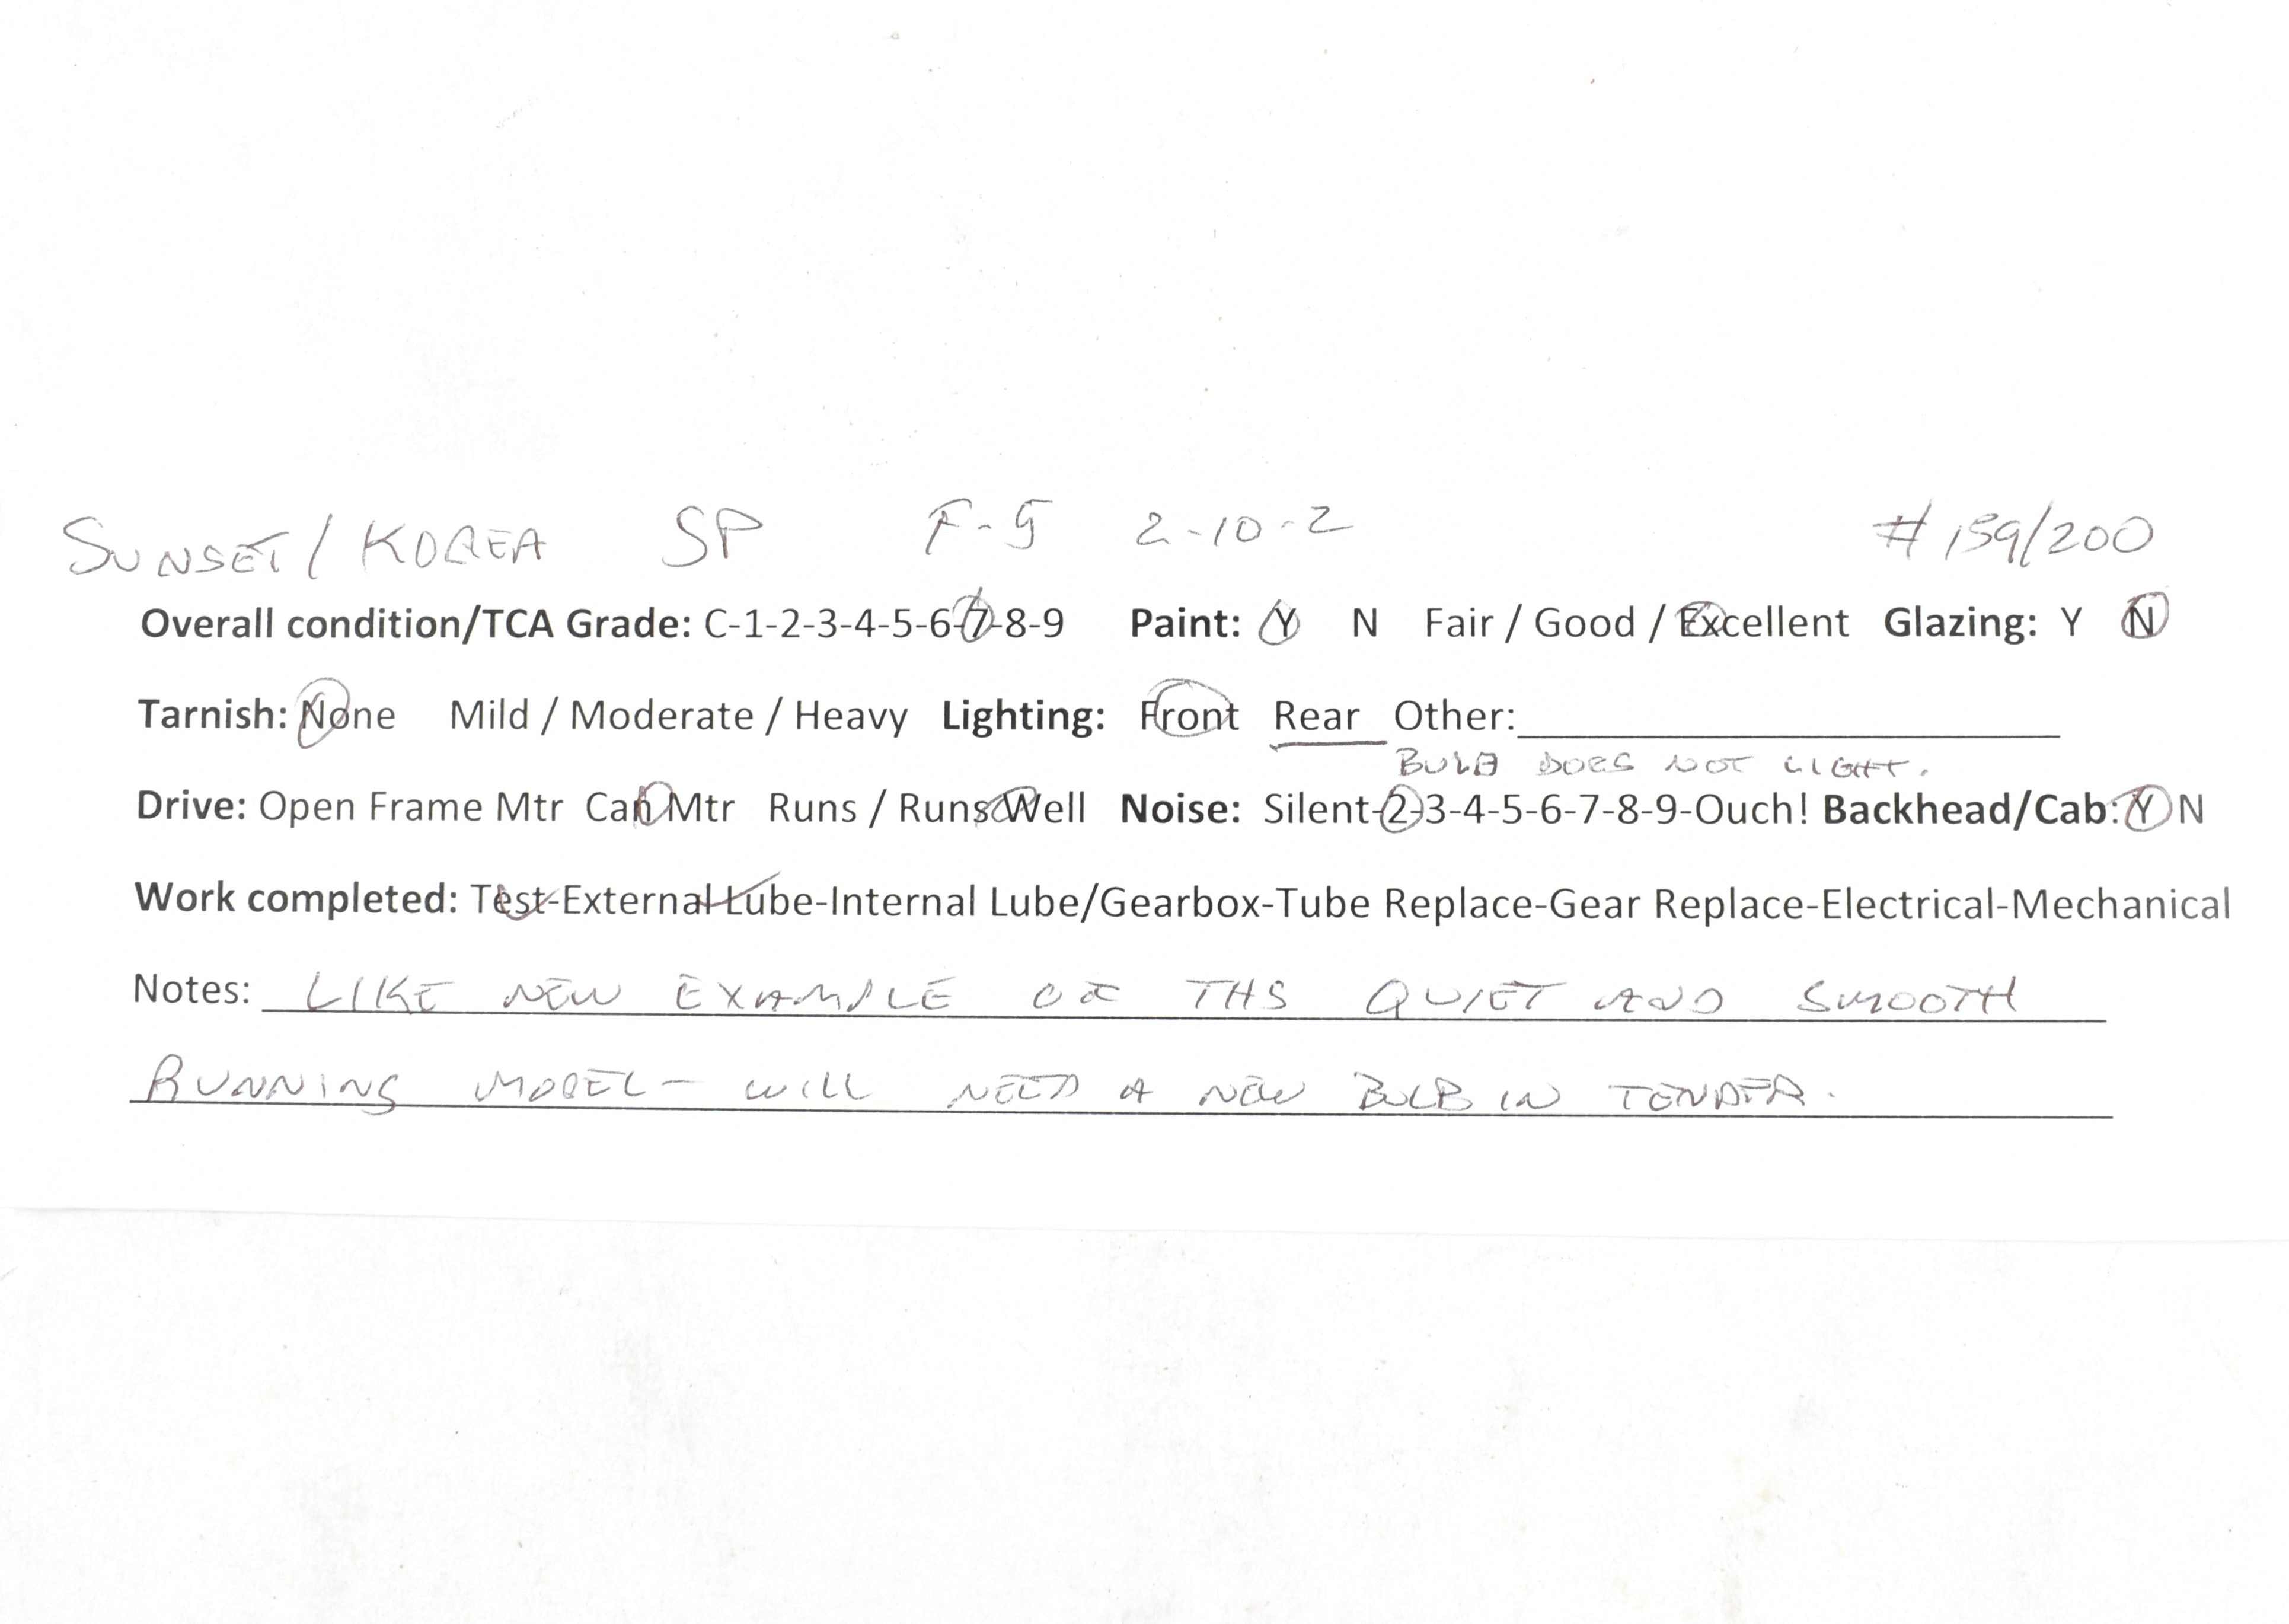 SUNSET/KOREA SP F-5 2-10-2 #159/200
Overall condition/TCA Grade: C-1-2-3-4-5-6-7-8-9 Paint: Y N Fair / Good / Excellent Glazing: Y N
Tarnish: None Mild / Moderate / Heavy Lighting: Front Rear Other:
BULB DOES NOT LIGHT.
Drive: Open Frame Mtr Can Mtr Runs / Runs Well Noise: Silent-2-3-4-5-6-7-8-9-Ouch! Backhead/Cab: Y N
Work completed: Test-External Lube-Internal Lube/Gearbox-Tube Replace-Gear Replace-Electrical-Mechanical
Notes: LIKE NEW EXAMPLE OF THS QUIET AND SMOOTH
RUNNING MODEL- WILL NEED A NEW BULB IN TENDER.